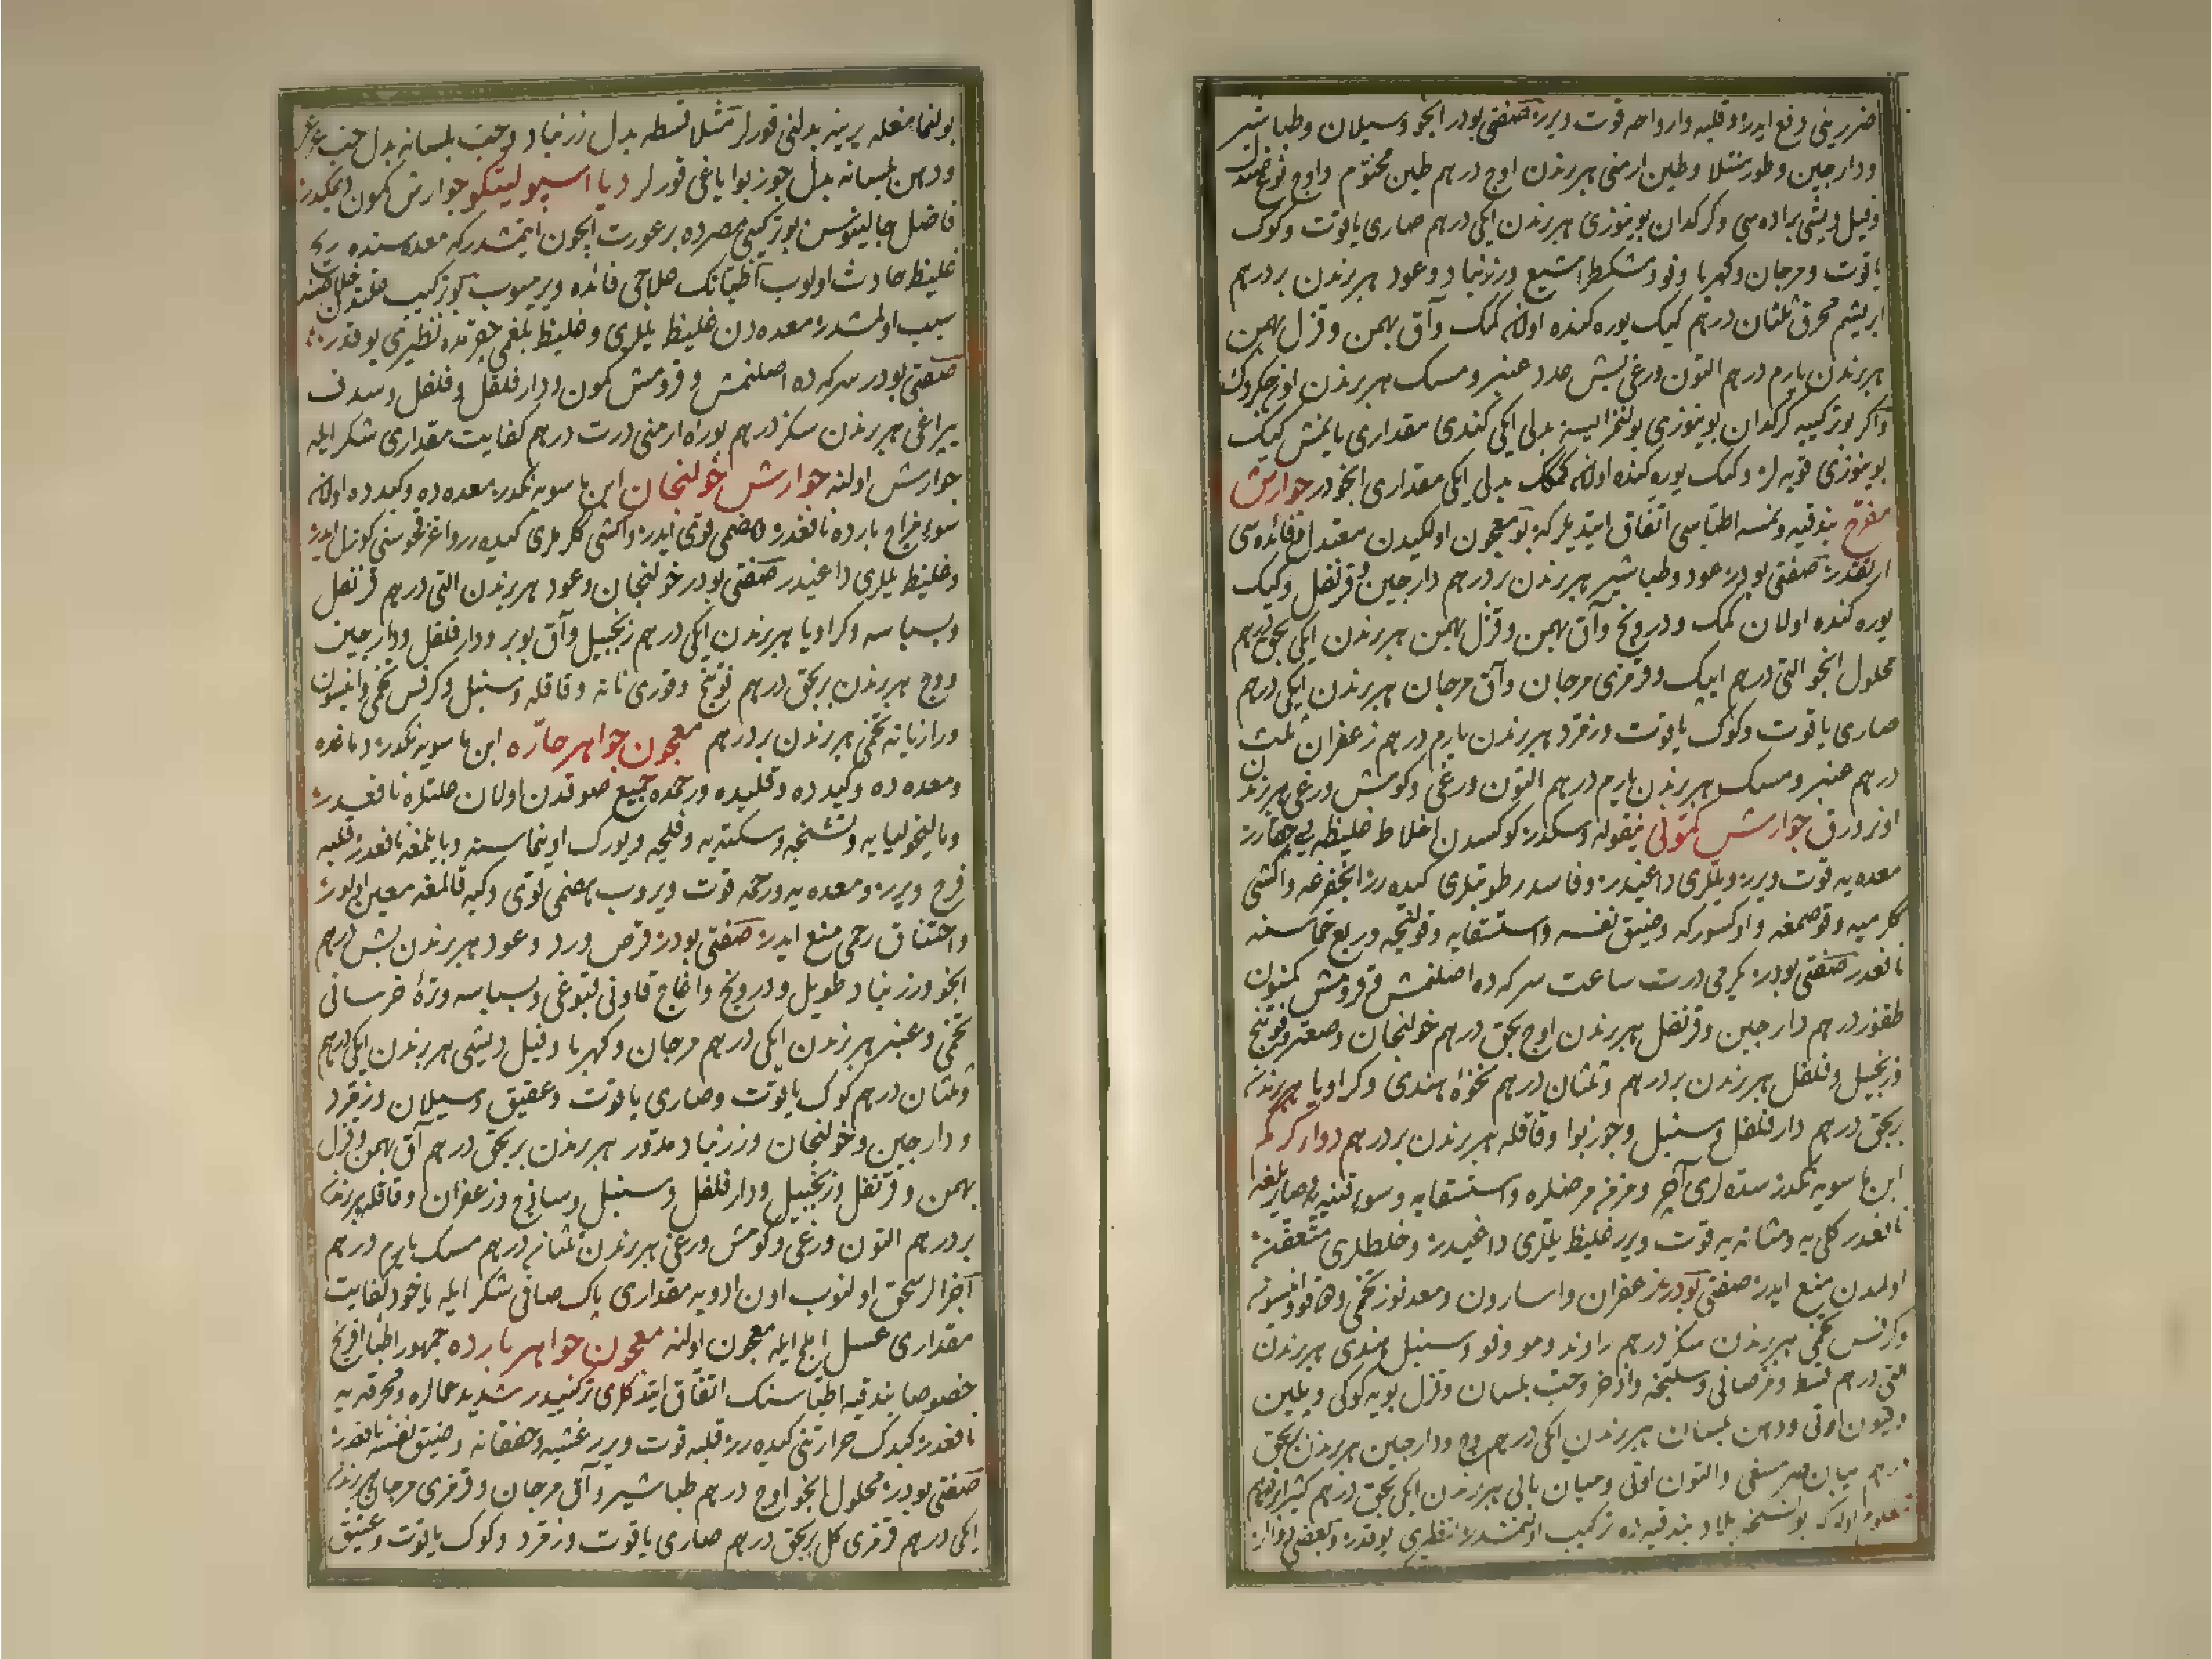 ضررینی دفع ایدر و قلبه و ارواحه قوت ویرر صفتی بودر انجو و سیلان و طباشیر
و دارچین و طورمنتلا و طین ارمنی هر برندن اوچ درهم طین مختوم و اوچ نوع صندل
و فیل دیشی براده سی و کرکدان بوینوزی هر برندن ایکی درهم صاری یاقوت و کوک
یاقوت و مرجان و کهربا و فود مشکطرامشیع و زرنباد و عود هر برندن بر درهم
ابریشم محرق ثلثان درهم کیک یوره کنده اولان کمک و آق بهمن و قزل بهمن
هر برندن یارم درهم التون ورغی بش عدد عنبر و مسک هر برندن اون چکردک
و اکر بو ترکیبه کرکدان بوینوزی بولنمز ایسه بدلی ایکی کندی مقداری یانمش کیک
بوینوزی قویه لر و کیک یوره کنده اولان کمک بدلی ایکی مقداری انجودر جوارش
مفرح بندقیه و نمسه اطباسی اتفاق ایتدیلر که بو معجون اولکیدن معتدل و فائده سی
ارتقدر صفتی بودر عود و طباشیر هر برندن بر درهم دارچین و قرنفل و کیک
یوره کنده اولان کمک و درونج و آق بهمن و قزل بهمن هر برندن ایکی بچق درهم
محلول انجو التی درهم ایپک و قرمزی مرجان و آق مرجان هر برندن ایکی درهم
صاری یاقوت و کوک یاقوت و زمرد هر برندن یارم درهم زعفران ثلث
درهم عنبر و مسک هر برندن یارم درهم التون ورغی و کومش ورغی هر برندن
اونر ورق جوارش کمونی نیقوله و سکندر کوکسدن اخلاط غلیظه یی چقارر
معده یه قوت ویرر و یللری داغیدر و فاسد رطوبتلری کیدرر انجقرغه و اکشی
ککرمیه و قوصمغه و اوکسورکه و ضیق نفسه و استسقایه و قولنجه و ربع حماسنه
نافعدر صفتی بودر یکرمی درت ساعت سرکه ده اصلنمش و قرومش کمون
طقوز درهم دارچین و قرنفل هر برندن اوچ بچق درهم خولنجان و صعتر و فوتنج
و زنجبیل و فلفل هر برندن بر درهم و ثلثان درهم نخوه هندی و کراویا هر برندن
بر بچق درهم دارفلفل و سنبل و جوزبوا و قاقله هر برندن بر درهم دواء کرکم
ابن ماسویه نکدر سده لری آچر و مزمن مرضلره و استسقایه و سوء قنیه یه و صاری بلغمه
نافعدر کلی یه و مثانه یه قوت ویرر غلیظ یللری داغیدر و خلطلری متعفن
اولمدن منع ایدر صفتی بودر زعفران و اسارون و معدنوز تخمی و دوقو و انیسون
و کرفس تخمی هر برندن سکز درهم راوند و مو و فو و سنبل هندی هر برندن
التی درهم قسط و قرصانی و سلیخه و اذخر و حب بلسان و قزل بویه کوکی و
قیون اوتی و دهن بلسان هر برندن ایکی درهم وج و دارچین هر برندن بر بچق
درهم میان صرمسغی و التون اوتی و میان بالی هر برندن ایکی بچق درهم کثیرا بر درهم
معلوم اوله که بو نسخه بلاد بندقیه ده ترکیب اولنمشدر نظیری یوقدر و بعضی دوالر
بولنمامغله یرینه بدلنی قورلر مثلا قسطه بدل زرنباد و حب بلسانه بدل حب عرعر
و دهن بلسانه بدل جوزبوا یاغی قورلر دیا اسپولیتکو جوارش کمون دیمکدر
فاضل جالینوس بو ترکیبی مصرده بر عورت ایچون ایتمشدر که معده سنده ریح
غلیظ حادث اولوب اطبانک علاجی فائده ویرمیوب بو ترکیب علتندن خلاصنه
سبب اولمشدر معده دن غلیظ یللری و غلیظ بلغمی چقرمده نظیری یوقدر
صفتی بودر سرکه ده اصلنمش و قرومش کمون و دارفلفل و فلفل و سدف
یپراغی هر برندن سکز درهم بوراه ارمنی درت درهم کفایت مقداری شکر ایله
جوارش اولنه جوارش خولنجان ابن ماسویه نکدر معده ده و کبدده اولان
سوء مزاج بارده نافعدر هضمی قوی ایدر و اکشی ککرملری کیدرر و اغز قوخوسنی کوزل ایدر
و غلیظ یللری داغیدر صفتی بودر خولنجان و عود هر برندن التی درهم قرنفل
و بسباسه و کراویا هر برندن ایکی درهم زنجبیل و آق بوبر و دارفلفل و دارچین
و وج هر برندن بر بچق درهم فوتنج و قوری نانه و قاقله و سنبل و کرفس تخمی و انیسون
و رازیانه تخمی هر برندن بر درهم معجون جواهر حاره ابن ماسویه نکدر دماغده
و معده ده و کبدده و قلبده و رحمده جمیع صوقدن اولان علتلره نافعدر
و مالیخولیایه و تشنجه و سکته یه و فلجه و یورک اوینماسنه و بایلمغه نافعدر قلبه
فرح ویرر و معده یه و رحمه قوت ویروب هضمی قوی و کبه قالمغه معین اولور
و احتناق رحمی منع ایدر صفتی بودر قرص ورد و عود هر برندن بش درهم
انجو و زرنباد طویل و درونج و اغاج قاونی قبوغی و بسباسه و ترۀ خرسانی
تخمی و عنبر هر برندن ایکی درهم مرجان و کهربا و فیل دیشی هر برندن ایکی درهم
و ثلثان درهم کوک یاقوت و صاری یاقوت و عقیق و سیلان و زمرد
و دارچین و خولنجان و زرنباد مدور هر برندن بر بچق درهم آق بهمن و قزل
بهمن و قرنفل و زنجبیل و دارفلفل و سنبل و ساذج و زعفران و قاقله هر برندن
بر درهم التون ورغی و کومش ورغی هر برندن ثلثان درهم مسک یارم درهم
اجزالر سحق اولنوب اون ادویه مقداری پاک صافی شکر ایله یاخود کفایت
مقداری عسل املج ایله معجون اولنه معجون جواهر بارده جمهور اطباء افرنج
خصوصا بندقیه اطباسنک اتفاق ایتدکلری ترکیبدر شدید حماله و محرقه یه
نافعدر کبدک حرارتنی کیدرر قلبه قوت ویرر غشیه و خفقانه و ضیق نفسه نافعدر
صفتی بودر محلول انجو اوچ درهم طباشیر و آق مرجان و قرمزی مرجان هر برندن
ایکی درهم قرمزی کل بر بچق درهم صاری یاقوت و زمرد و کوک یاقوت و عقیق